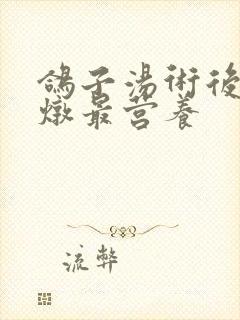 鴿子湯術後
燉最营养
流弊